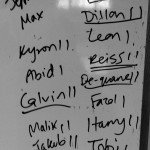 Max
Kyron 11
Abid 1
Calvin 11
Malix 11
Jakub 11
Dillon 11
Leon 1
Reiss 11
De-quane 11
Farol
Harry 11